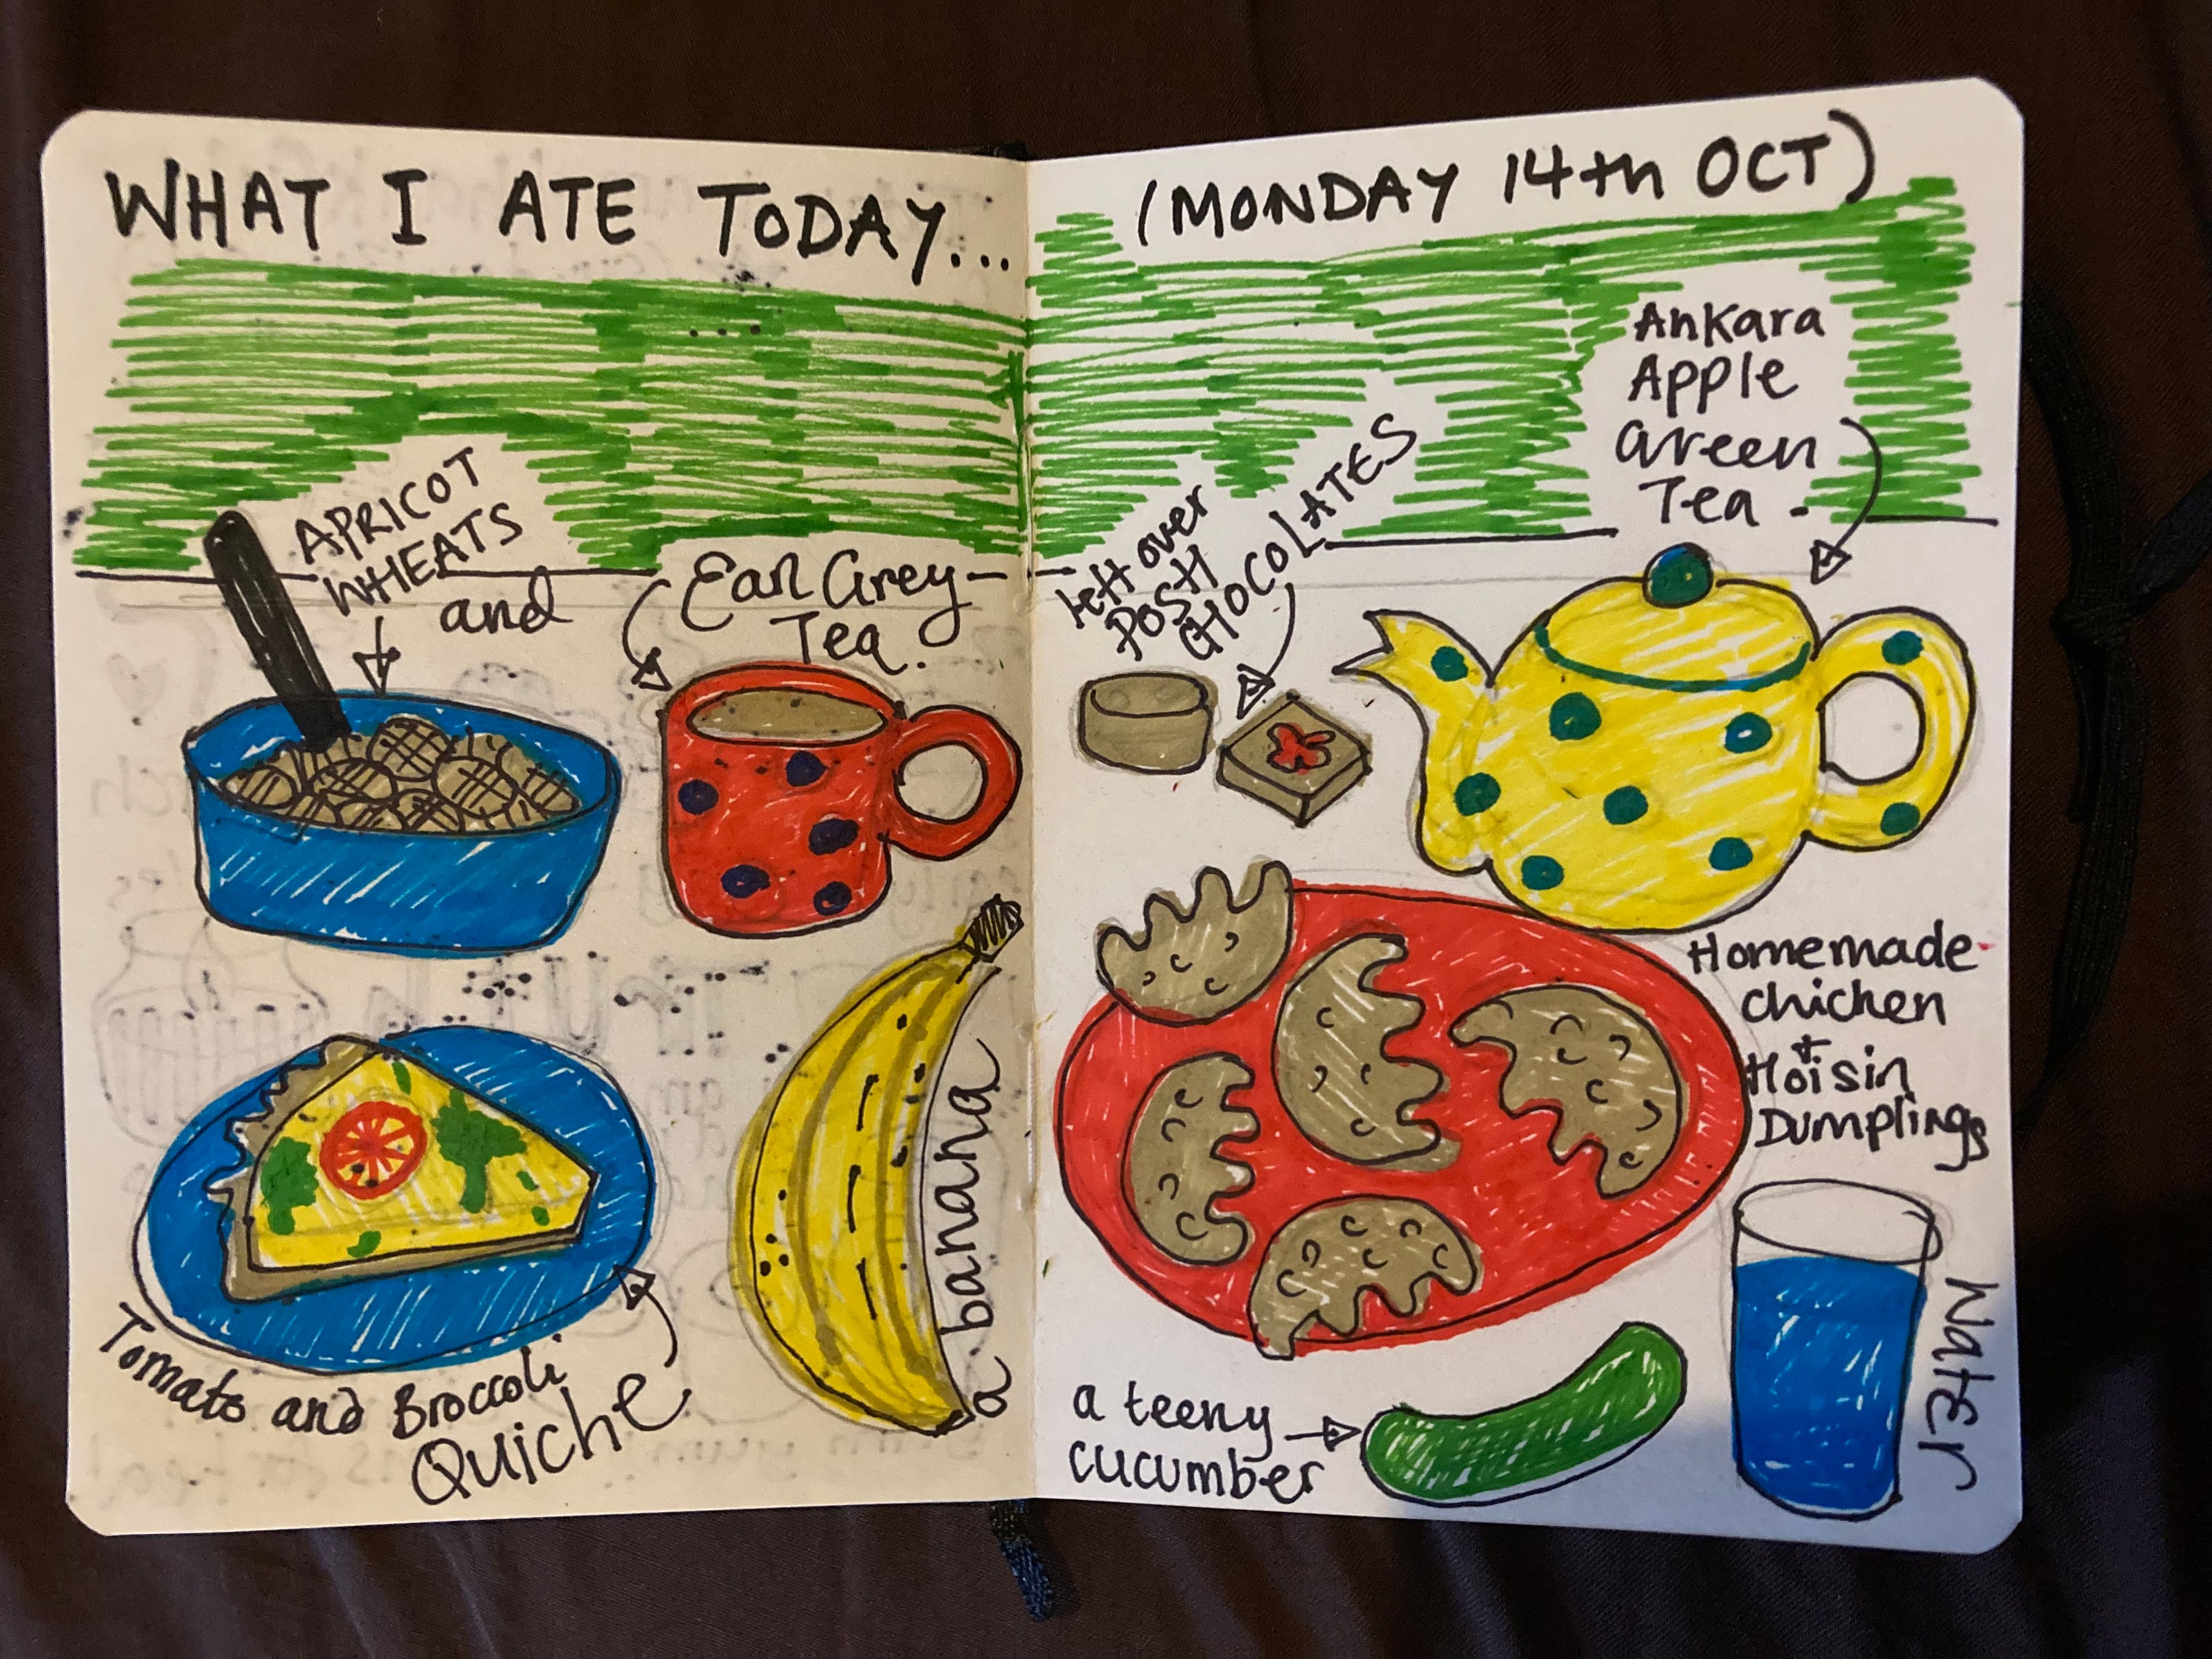 WHAT I ATE TODAY...
(MONDAY 14th OCT)
APRICOT
WHEATS
and
Earl Grey
Tea.
Tomato and Broccoli
Quiche
a banana
left over
POSH
CHOCOLATES
Ankara
Apple
Green
Tea -
Homemade
chicken
+
Hoisin
Dumplings
a teeny
cucumber
Water